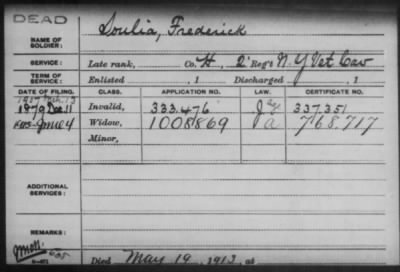 DEAD
NAME OF SOLDIER: Soulia, Frederick
SERVICE: Late rank, Co. H, 2" Reg't N. Y. Vet Cav
TERM OF SERVICE: Enlisted , 1 Discharged , 1
DATE OF FILING. CLASS. APPLICATION NO. LAW. CERTIFICATE NO.
1879 Dec 11 Invalid, 333.476 337.351
June 4 Widow, 1008869 a 768.717
Minor,
ADDITIONAL SERVICES:
REMARKS:
Died May 19, 1913, at